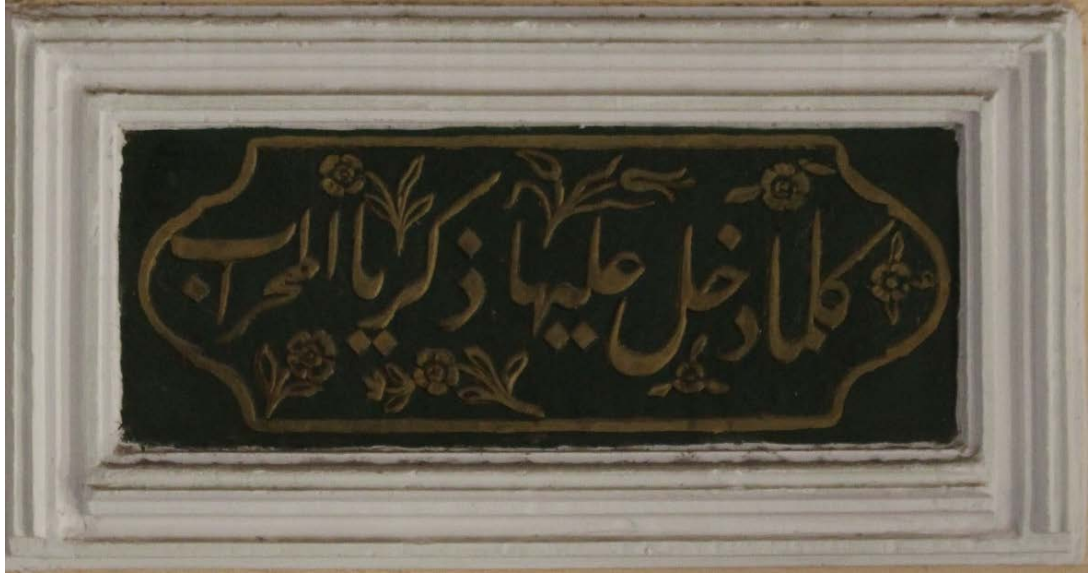 كلما دخل عليها ذكريا المحراب